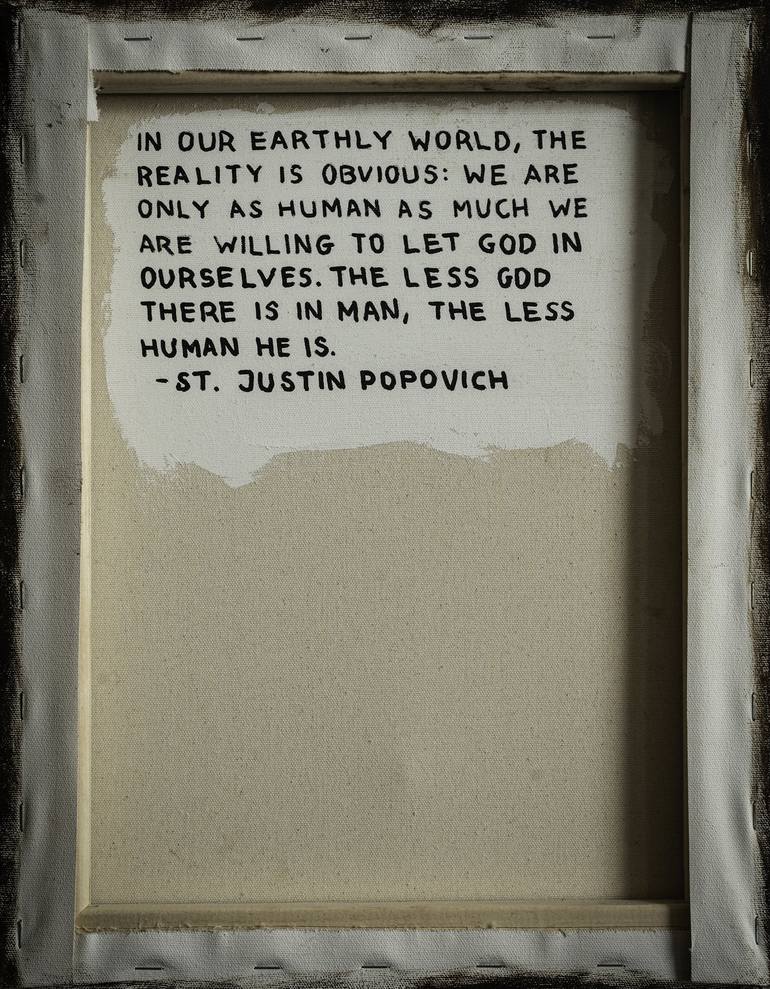 IN OUR EARTHLY WORLD, THE
REALITY IS OBVIOUS: WE ARE
ONLY AS HUMAN AS MUCH WE
ARE WILLING TO LET GOD IN
OURSELVES. THE LESS GOD
THERE IS IN MAN, THE LESS
HUMAN HE IS.
-ST. JUSTIN POPOVICH